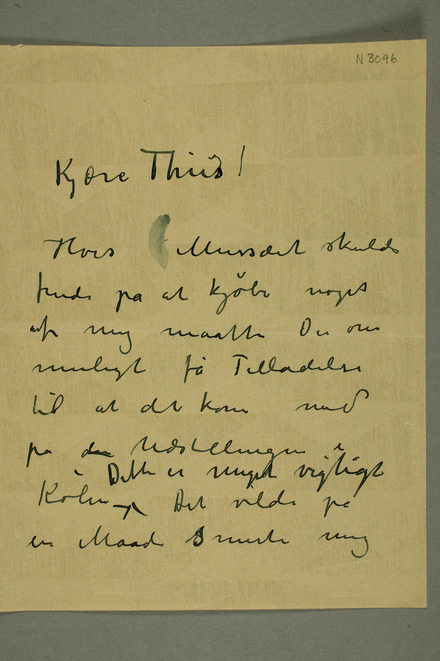 N 3096
Kjære Thiis!
Hvis Musæet skulde
finde på at kjöbe noget
af mig maatte Du om
muligt få Tilladelse
til at det kom med
på den Udstillingen i
Köln – Dette er meget vigtigt
Det vilde på
en Maade mig